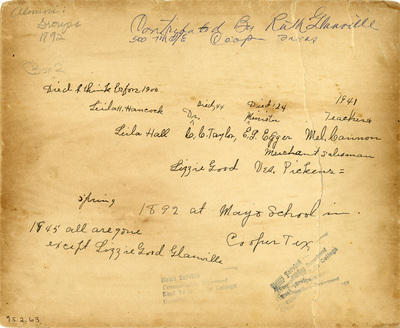 Alumni
Groups
1892
Contributed By Ruth Glanville
Cooper Texas
Died I think before 1900
Died 44 Died 24 1941
Leila H. Hancock Dr. Minister Teacher
Leila Hall C. C. Taylor, E. G. Egger Mel. Cannon
Merchant Salesman
Lizzie Good Ves. Pickens =
Spring
1892 at Mayo School in
Cooper Tex
1945 all are gone
except Lizzie Good Glanville
News Service
East Texas
News Service
College
75.2.63